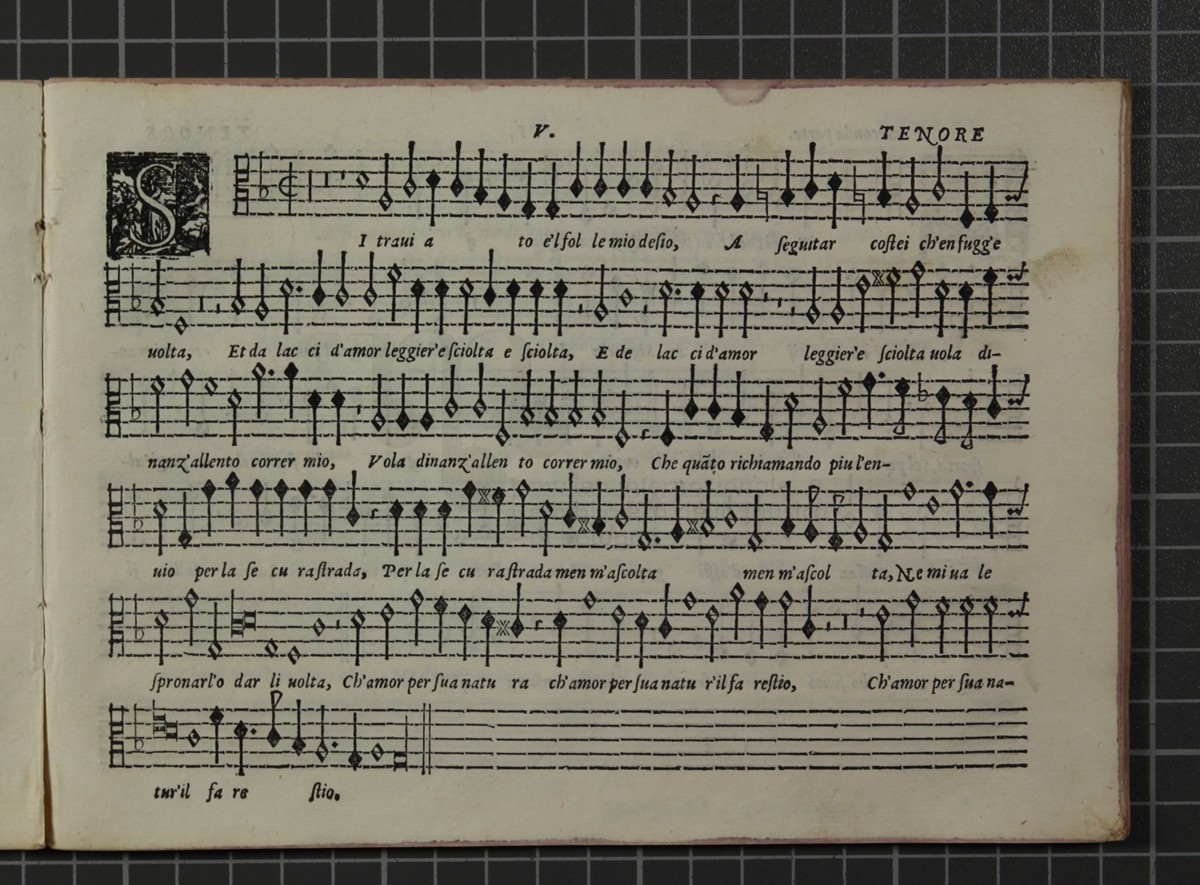 V.
TENORE
S
I traui a to e'l fol le mio desio, A seguitar costei ch'en fugg'e
uolta, Et da lac ci d'amor leggier'e sciolta e sciolta, E de lac ci d'amor leggier'e sciolta uola di-
nanz'allento correr mio, Vola dinanz'allen to correr mio, Che quãto richiamando piu l'en-
uio per la se cu ra strada, Per la se cu ra strada men m'ascolta men m'ascol ta, Ne mi ua le
spronarl'o dar li uolta, Ch'amor per sua natu ra ch'amor per sua natu r'il fa restio, Ch'amor per sua na-
tur'il fa re stio.